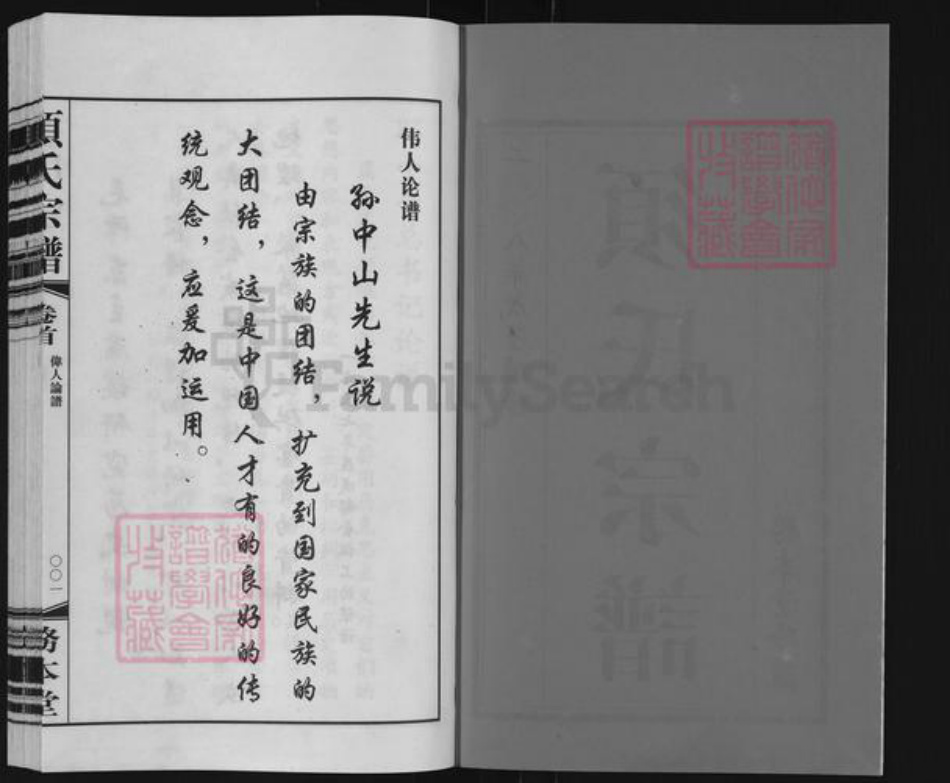 伟人论谱
孙中山先生说
由宗族的团结，扩充到国家民族的
大团结，这是中国人才有的良好的传
统观念，应爰加运用。
氏宗譜
卷首
偉人論譜
〇〇一
務本堂
FamilySearch
氏宗譜